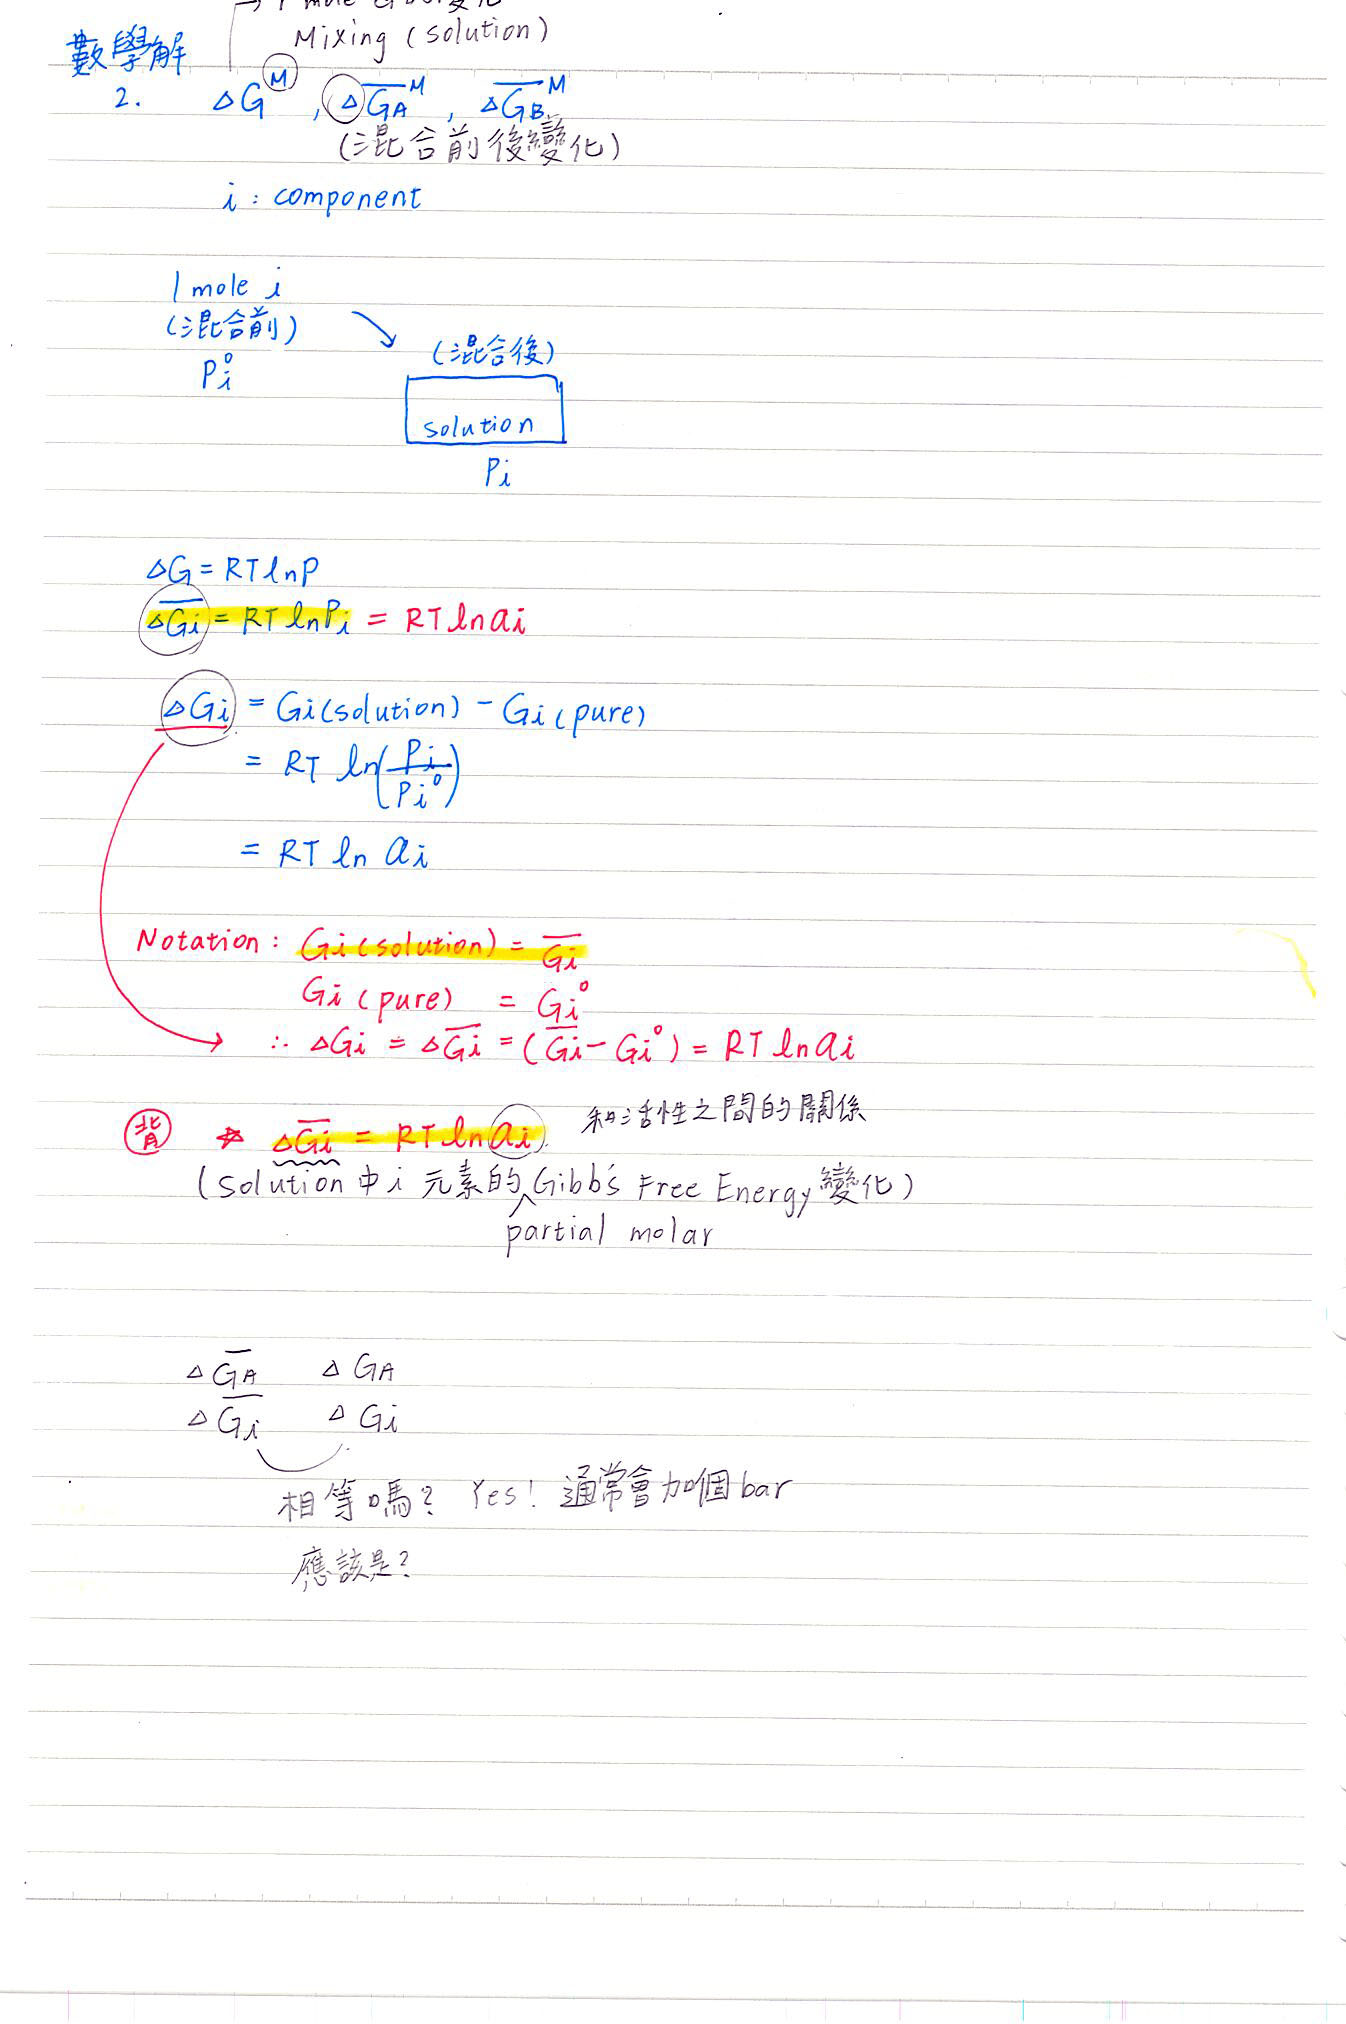 Mixing (solution)
數學解
2. ΔG^M , Δ\overline{G_A}^M , Δ\overline{G_B}^M
(混合前後變化)
i : component
1 mole i
(混合前)
P_i^o
(混合後)
solution
P_i
ΔG = RT ln P
Δ\overline{G_i} = RT ln P_i = RT ln a_i
ΔG_i = G_i (solution) - G_i (pure)
= RT ln(P_i / P_i^o)
= RT ln a_i
Notation : G_i (solution) = \overline{G_i}
G_i (pure) = G_i^o
∴ ΔG_i = Δ\overline{G_i} = (\overline{G_i} - G_i^o) = RT ln a_i
背 ☆ Δ\overline{G_i} = RT ln a_i 和活性之間的關係
(solution 中 i 元素的 Gibb's Free Energy 變化)
partial molar
Δ\overline{G_A} ΔG_A
Δ\overline{G_i} ΔG_i
相等嗎? Yes! 通常會加個 bar
應該是?